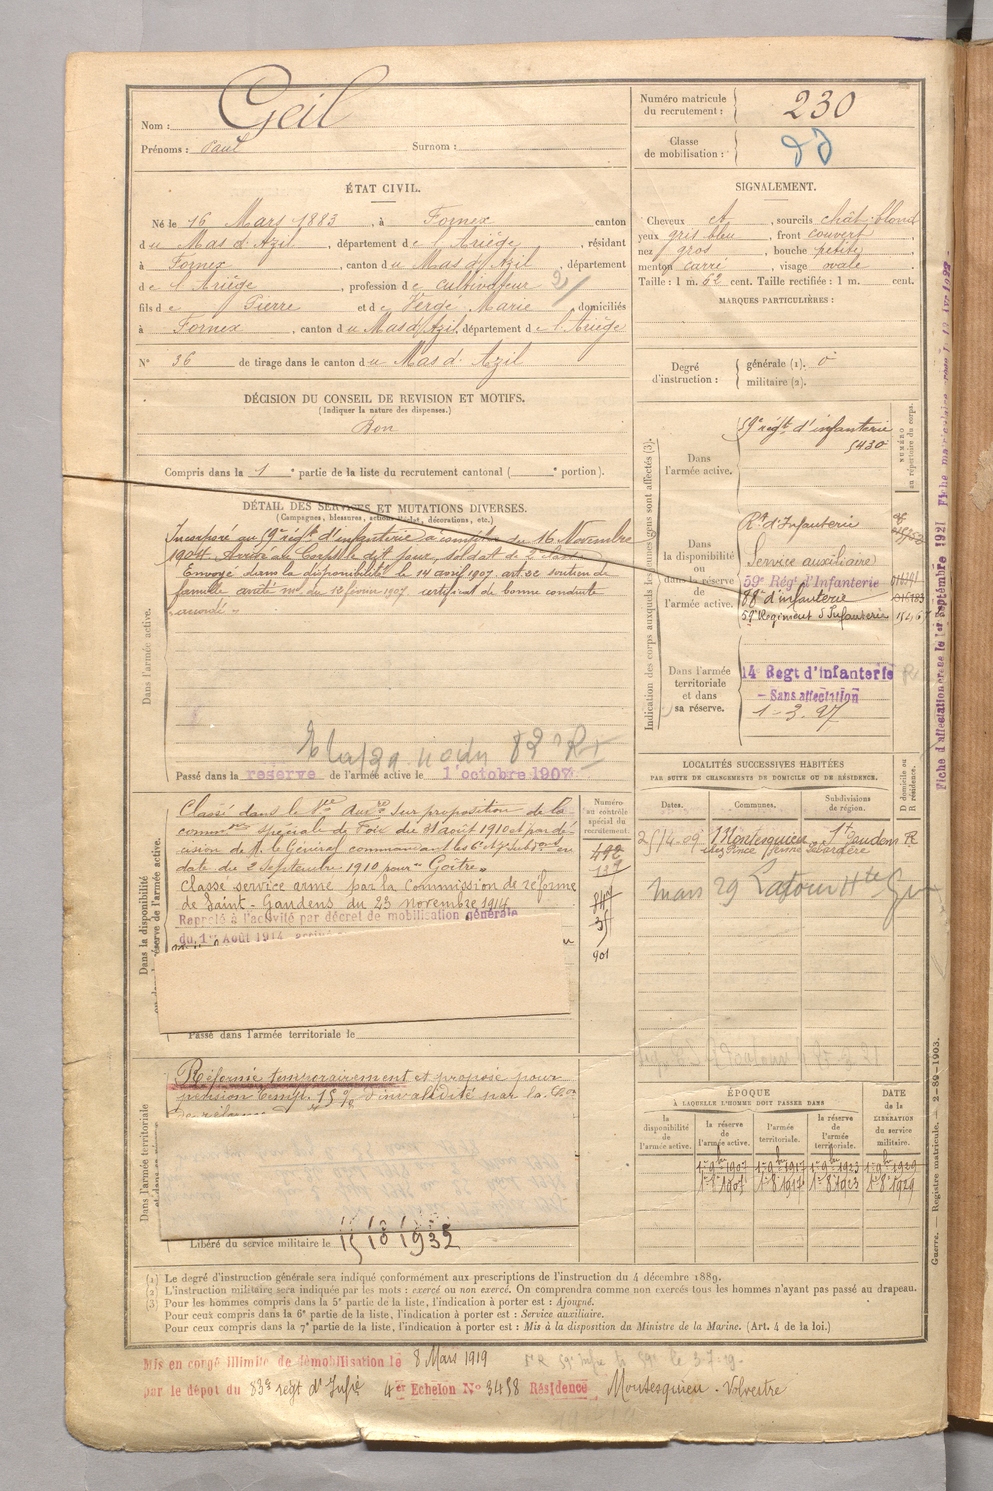 Nom : Geil
Prénoms : Paul Surnom :
Numéro matricule
du recrutement : 230
Classe
de mobilisation :
ÉTAT CIVIL.
Né le 16 Mars 1883, à Fornex canton
du Mas d'Azil, département de l'Ariège, résidant
à Fornex, canton du Mas d'Azil, département
de l'Ariège, profession de cultivateur
fils de Pierre et de Vergé Marie, domiciliés
à Fornex, canton du Mas d'Azil, département de l'Ariège
N° 36 de tirage dans le canton du Mas d'Azil
DÉCISION DU CONSEIL DE REVISION ET MOTIFS.
(Indiquer la nature des dispenses.)
Bon
Compris dans la 1e partie de la liste du recrutement cantonal ( e portion).
DÉTAIL DES SERVICES ET MUTATIONS DIVERSES.
(Campagnes, blessures, actions d'éclat, décorations, etc.)
Dans l'armée active.
Incorporé au 59e régt d'infanterie à compter du 16 Novembre
1904. Arrivé au Corps le dit jour, soldat de 2e classe
Envoyé dans la disponibilité le 14 avril 1907. art. 32 soutien de
famille arrêté du 18 février 1907. certificat de bonne conduite
accordé.
83e RI
Passé dans la réserve de l'armée active le 1 octobre 1907
SIGNALEMENT.
Cheveux et, sourcils chât: blond
yeux gris bleu, front couvert,
nez gros, bouche petite,
menton carré, visage ovale
Taille : 1 m. 62 cent. Taille rectifiée : 1 m. cent.
MARQUES PARTICULIÈRES :
Degré
d'instruction :
générale (1). 0
militaire (2).
Indication des corps auxquels les jeunes gens sont affectés (3).
NUMÉRO
au répertoire du corps.
Dans
l'armée active.
59e régt d'infanterie
5430
Dans
la disponibilité
ou
dans la réserve
de
l'armée active.
Rt d'Infanterie
Service auxiliaire
59e Régt d'Infanterie
88e d'infanterie
59e Régiment d'Infanterie
Dans l'armée
territoriale
et dans
sa réserve.
14e Regt d'infanterie
- Sans affectation
1-3.27
Fiche d'affectation le 1er Septembre 1921
LOCALITÉS SUCCESSIVES HABITÉES
PAR SUITE DE CHANGEMENTS DE DOMICILE OU DE RÉSIDENCE.
D domicile ou
R résidence.
Dates. Communes. Subdivisions
de région.
25/4.09 Montesquieu St Gaudens R
mars 29 Latour Hte
Dans la disponibilité
réserve de l'armée active.
Numéro
au contrôle
spécial du
recrutement.
Classé dans le Sce Auxre sur proposition de la
common spéciale de Foix du 31 août 1910 et par dé-
cision de M. le Général commandant les en
date du 2 Septembre 1910 pour "Goître"
Classé service armé par la Commission de réforme
de Saint-Gaudens du 23 novembre 1914
Rappelé à l'activité par décret de mobilisation générale
du 1er Août 1914
901
Passé dans l'armée territoriale le
Dans l'armée territoriale
Réformé temporairement et proposé pour
pension temp. 15 % d'invalidité par la
Libéré du service militaire le 15 10 1932
ÉPOQUE
À LAQUELLE L'HOMME DOIT PASSER DANS
DATE
de la
LIBÉRATION
du service
militaire.
la
disponibilité
de
l'armée active.
la réserve
de
l'armée active.
l'armée
territoriale.
la réserve
de
l'armée
territoriale.
1er 9bre 1907 1er 9bre 1917 1er 9bre 1923 1er 9bre 1929
Guerre. — Registre matricule. — 2-89-1903.
(1) Le degré d'instruction générale sera indiqué conformément aux prescriptions de l'instruction du 4 décembre 1889.
(2) L'instruction militaire sera indiquée par les mots : exercé ou non exercé. On comprendra comme non exercés tous les hommes n'ayant pas passé au drapeau.
(3) Pour les hommes compris dans la 5e partie de la liste, l'indication à porter est : Ajourné.
Pour ceux compris dans la 6e partie de la liste, l'indication à porter est : Service auxiliaire.
Pour ceux compris dans la 7e partie de la liste, l'indication à porter est : Mis à la disposition du Ministre de la Marine. (Art. 4 de la loi.)
Mis en congé illimité de démobilisation le 8 Mars 1919
par le dépot du 83e régt d'Infie 4er Echelon No 3458 Résidence Montesquieu-Volvestre